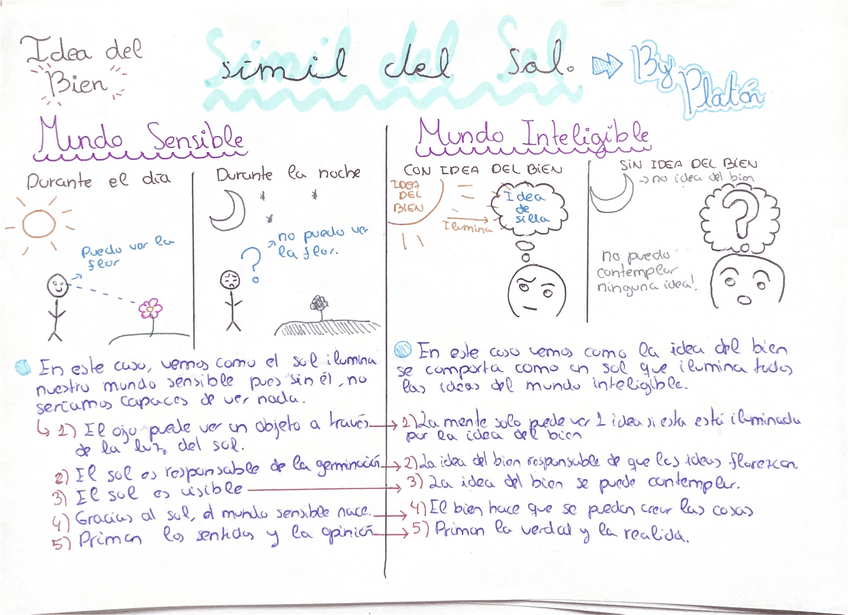 Idea del
Bien
símil del Sol.
By
Platón
Mundo Sensible
Mundo Inteligible
Durante el día
Durante la noche
CON IDEA DEL BIEN
SIN IDEA DEL BIEN
Puedo ver la
flor
no puedo ver
la flor.
?
IDEA
DEL
BIEN
Ilumina
Idea
de
silla
no idea del bien
?
no puedo
contemplar
ninguna idea!
En este caso, vemos como el sol ilumina
nuestro mundo sensible pues sin él, no
seríamos capaces de ver nada.
1) El ojo puede ver un objeto a través
de la luz del sol.
2) El sol es responsable de la germinación
3) El sol es visible
4) Gracias al sol, el mundo sensible nace.
5) Priman los sentidos y la opinión
En este caso vemos como la idea del bien
se comporta como un sol que ilumina todas
las ideas del mundo inteligible.
1) La mente solo puede ver 1 idea si esta está iluminada
por la idea del bien
2) La idea del bien responsable de que las ideas florezcan
3) La idea del bien se puede contemplar.
4) El bien hace que se puedan crear las cosas
5) Priman la verdad y la realidad.